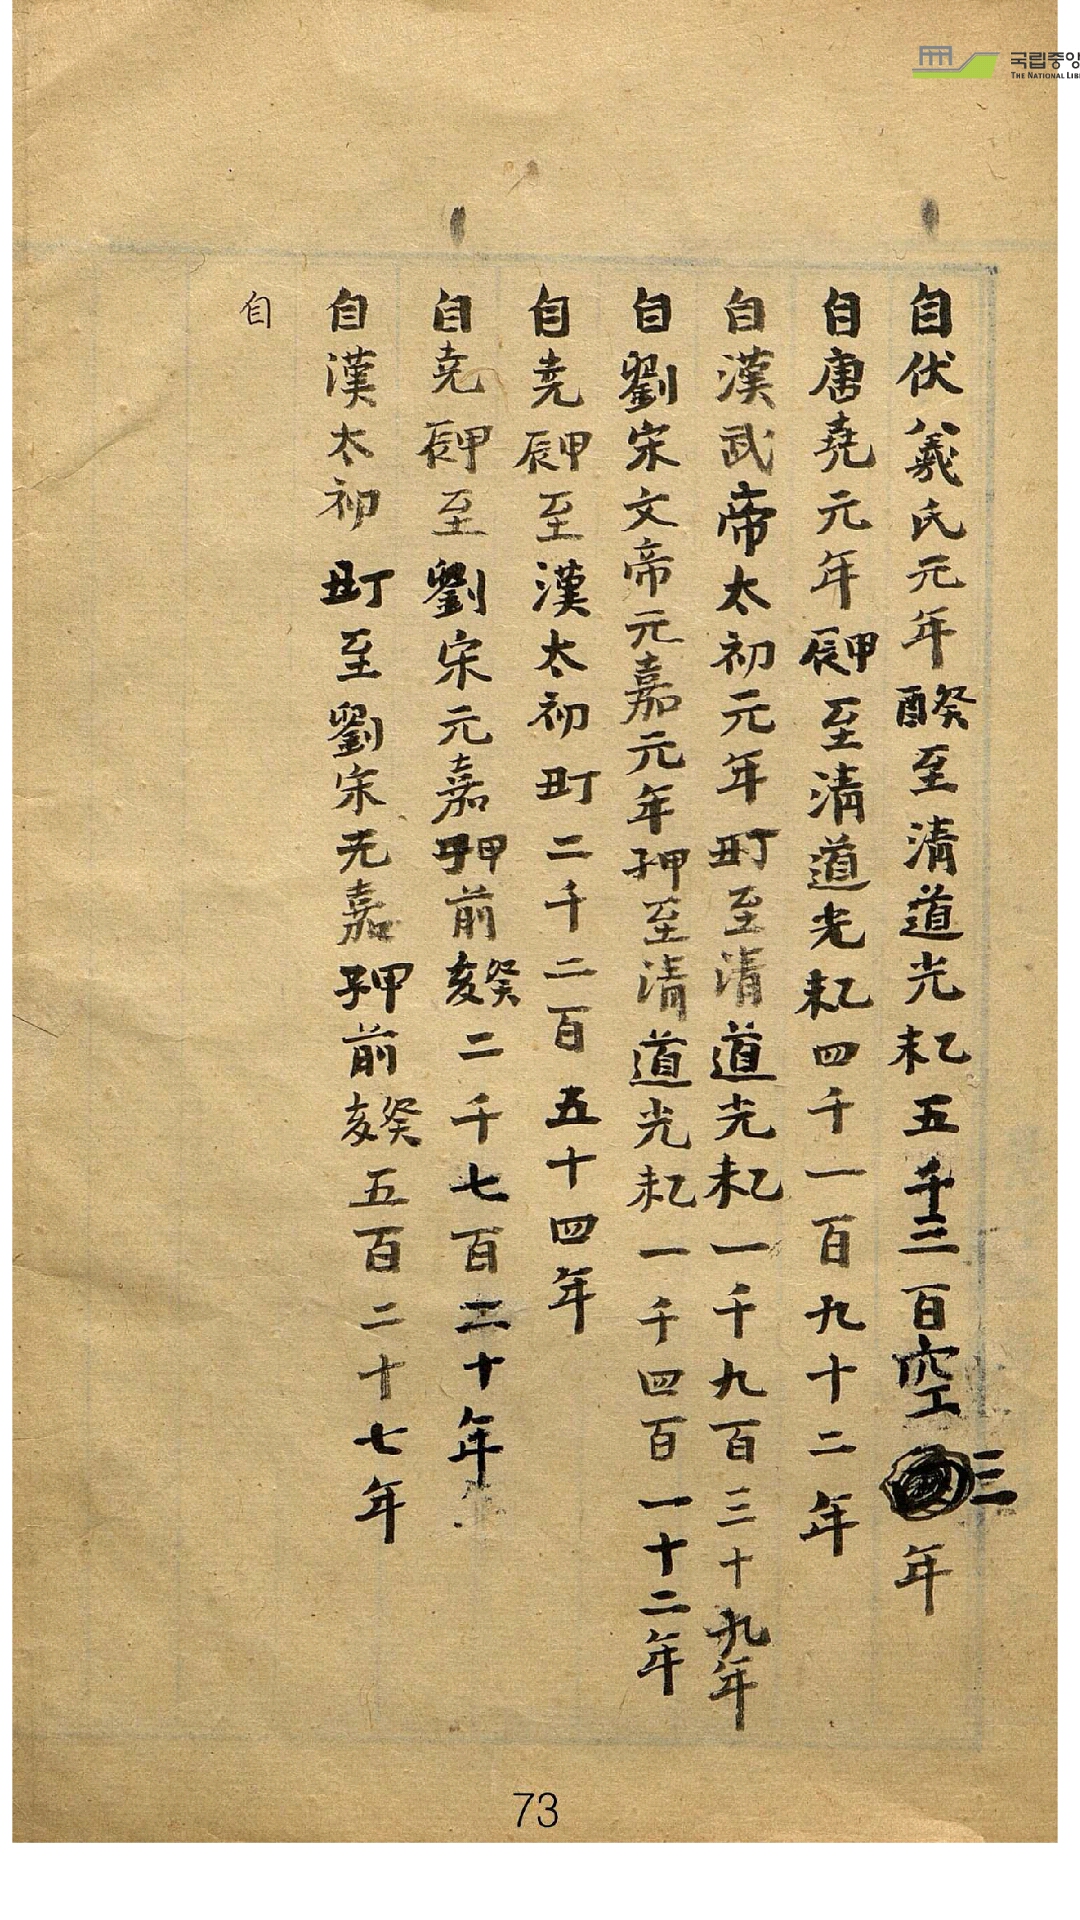 국립중앙
THE NATIONAL LIB
自伏羲氏元年癸酉至清道光乙未五千三百空三年
自唐堯元年甲辰至清道光乙未四千一百九十二年
自漢武帝太初元年丁丑至清道光乙未一千九百三十九年
自劉宋文帝元嘉元年甲子至清道光乙未一千四百一十二年
自堯甲辰至漢太初丁丑二千二百五十四年
自堯甲辰至劉宋元嘉甲子前癸亥二千七百二十年
自漢太初丁丑至劉宋元嘉甲子前癸亥五百二十七年
自
73